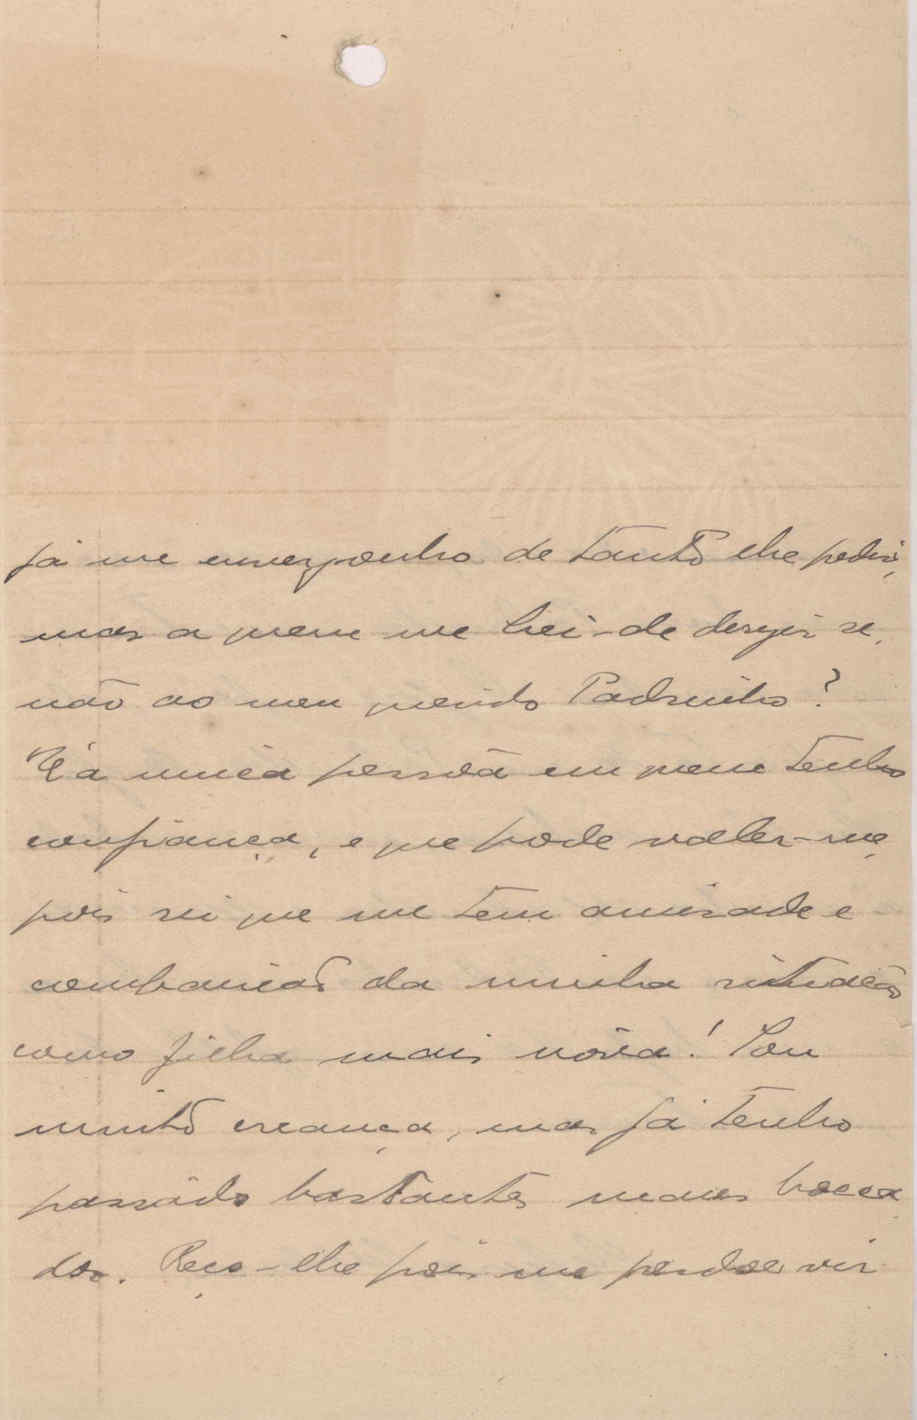 já me envergonho de tanto lhe pedir,
mas a quem me hei-de deregir se,
não ao meu querido Padrinho?
É a unica pessôa em quem tenho
confiança, e que pode valer-me,
pois sei que me tem amisade e
compaixão da minha situação
como filha mais nova! Sou
muito creança, mas já tenho
passado bastantes maus bocca
dos. Peço-lhe pois me perdoe vir